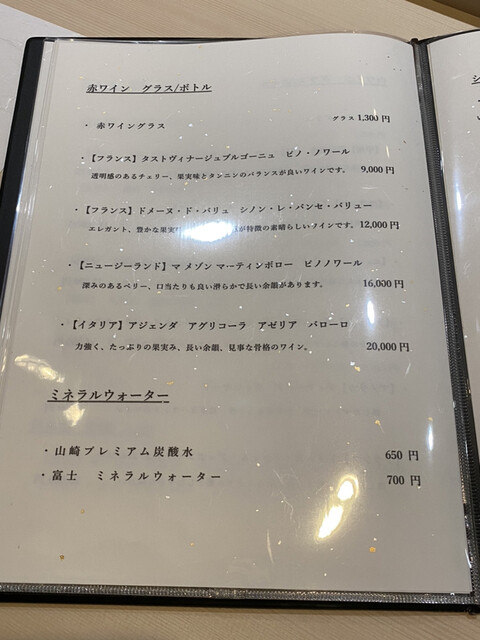 赤ワイン　グラス/ボトル
・ 赤ワイングラス　グラス 1,300 円
・【フランス】タストヴィナージュブルゴーニュ　ピノ・ノワール
透明感のあるチェリー、果実味とタンニンのバランスが良いワインです。 9,000円
・【フランス】ドメーヌ・ド・バリュ　シノン・レ・パンセ・バリュー
エレガント、豊かな果実 が特徴の素晴らしいワインです。 12,000円
・【ニュージーランド】マ メゾン マーティンボロー　ピノノワール
深みのあるベリー、口当たりも良い滑らかで長い余韻があります。 16,000円
・【イタリア】アジェンダ　アグリコーラ　アゼリア　バローロ
力強く、たっぷりの果実み、長い余韻、見事な骨格のワイン。 20,000円
ミネラルウォーター
・山崎プレミアム炭酸水　650 円
・富士　ミネラルウォーター　700 円